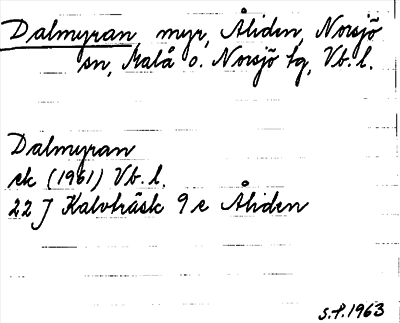 Dalmyran, myr, Åliden, Norsjö
sn, Malå o. Norsjö tg, Vb. l.
Dalmyran
ek (1961) Vb. l.
22 J Kalvträsk 9 e Åliden
S.P. 1963